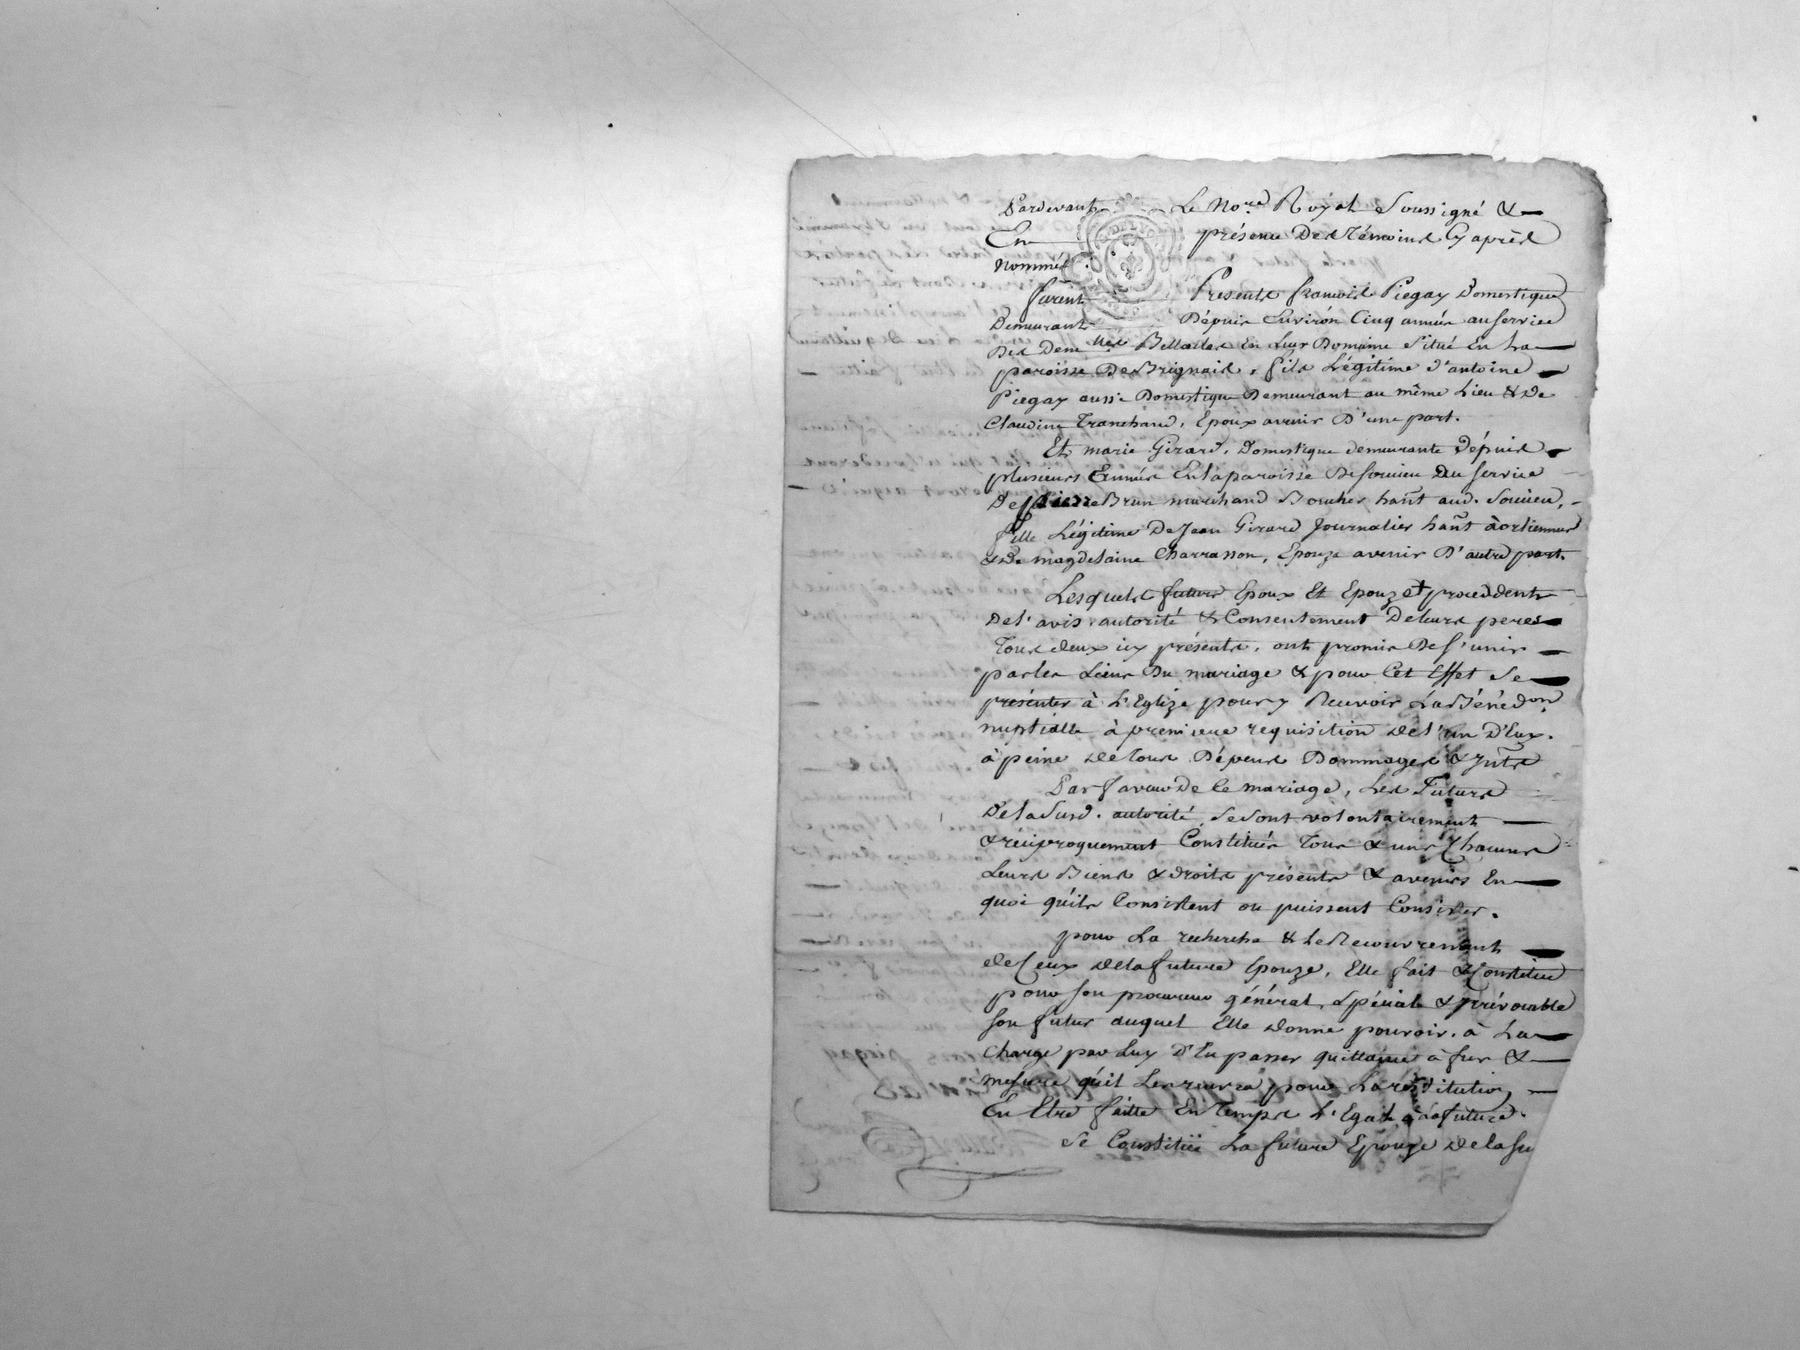 Pardevant Le No.re Royal Soussigné &
En présence Des Témoins Cy après
nommés.
furent Presents françois Piegay Domestique
Demeurant Dépuis Environ Cinq années au service
Des Dem.lles En Leur Domaine Situé En La
paroisse De Brignais, fils Légitime d'antoine
Piegay aussi Domestique Demeurant au même Lieu & De
Claudine Tranchand, Epoux avenir D'une part.
Et marie Girard, Domestique demeurante Dépuis
plusieurs Années En la paroisse De Soucieu Au service
De pierre Brun marchand Boucher hañt aud. Soucieu,
fille Légitime De Jean Girard Journalier hañt à orliennas
& De magdelaine Charrasson, Epouze avenir D'autre part.
Lesquels futurs Epoux Et Epouze procédents
De l'avis autorité & Consentement De leurs peres
Tous deux icy présents, ont promis De s'unir
par les Liens Du mariage & pour Cet Effet Se
présenter à L'Eglize pour y Recevoir La Bénédon
nuptialle à premiere requisition de l'un D'Eux.
à peine de Tous Dépens Dommages & Jnts
Par faveur De Ce mariage, Les Futurs
De la Susd. autorité, se sont volontairement
& réciproquement Constitués Tous & uns Chacuns
Leurs Biens & droits présents & avenirs En
quoi qu'ils Consistent ou puissent Consister.
pour La recherche & le Recouvrement
de Ceux de la future Epouze, Elle fait & Constitue
pour son procureur général, Spécial & irrévocable
son futur auquel Elle donne pouvoir, à La
Charge par Luy D'En passer quittance à fur &
mesure qu'il Les recevra pour La restitution
En Etre faitte En Temps L'Egal à la future.
Se Constitüe La future Epouze de la su